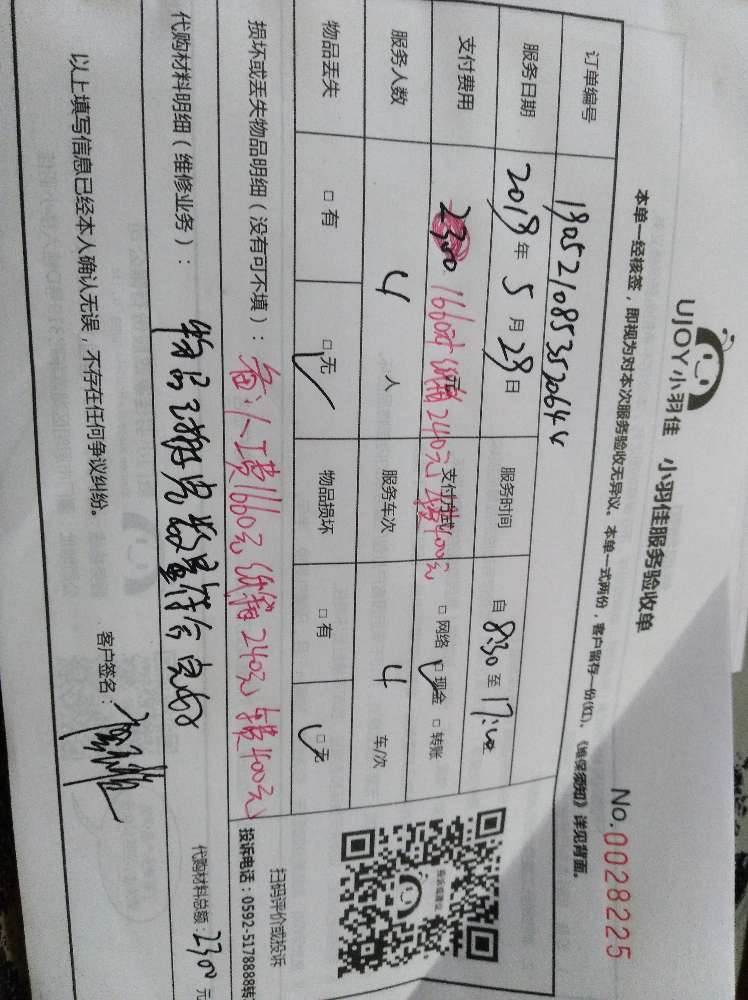 UJOY小羽佳 小羽佳服务验收单
No.0028225
本单一经核签，即视为对本次服务验收无异议。本单一式两份，客户留存一份(红)、《维保须知》详见背面。
订单编号 190521085352064
服务日期 2019年5月28日 服务时间 自8:30至17:00
支付费用 2300 1660元 纸箱240元 支付方式 400元 □网络 □现金 □转账
服务人数 4人 服务车次 4车/次
物品丢失 □有 □无 物品损坏 □有 □无
损坏或丢失物品明细（没有可不填）： 人工费1660元 纸箱240元 400元
代购材料明细（维修业务）： 物品 数量 代购材料总额：2300元
以上填写信息已经本人确认无误，不存在任何争议纠纷。
客户签名：
投诉或建议
扫码评价或投诉
投诉电话：0592-5178888转